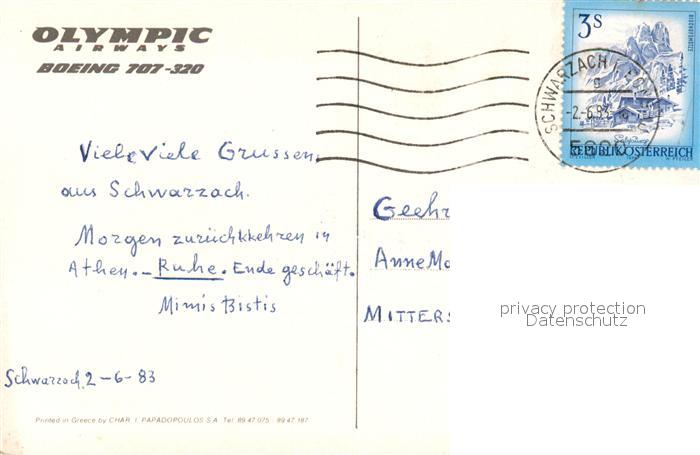 OLYMPIC
AIRWAYS
BOEING 707-320
Viele Viele Grussen
aus Schwarzach.
Morgen zurückkehren in
Athen.- Ruhe. Ende geschäft.
Mimis Bistis
Schwarzach, 2-6-83
Printed in Greece by CHAR. I. PAPADOPOULOS S.A. Tel: 89.47.075 89.47.187
3 S
BISCHOFSMÜTZE
REPUBLIK ÖSTERREICH
SCHWARZACH
-2.-6.83
Geehr
Anne
MITTERS
privacy protection
Datenschutz